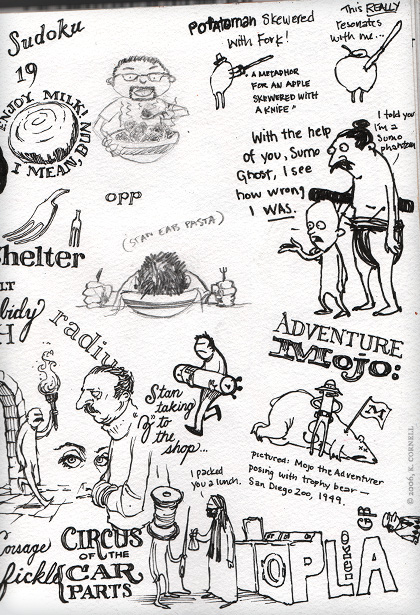 Sudoku
19
ENJOY MILK!
I MEAN, BUN!
POTATOMAN SKEWERED
WITH FORK!
"A METAPHOR
FOR AN APPLE
SKEWERED WITH
A KNIFE"
This REALLY
resonates
with me...
I told you
I'm a
Sumo
phantom
With the help
of you, Sumo
Ghost, I see
how wrong
I WAS.
opp
(STAN EATS PASTA)
Shelter
LT
bidy
H
radius
Stan
taking
"Z" to
the
shop...
ADVENTURE
MOJO:
M
pictured: Mojo the Adventurer
posing with trophy bear —
San Diego Zoo, 1949.
I packed
you a lunch.
Corsage
fickle
CIRCUS
OF THE
CAR
PARTS
TOPLIA
oxen
GP
© 2006, R. CORNELL